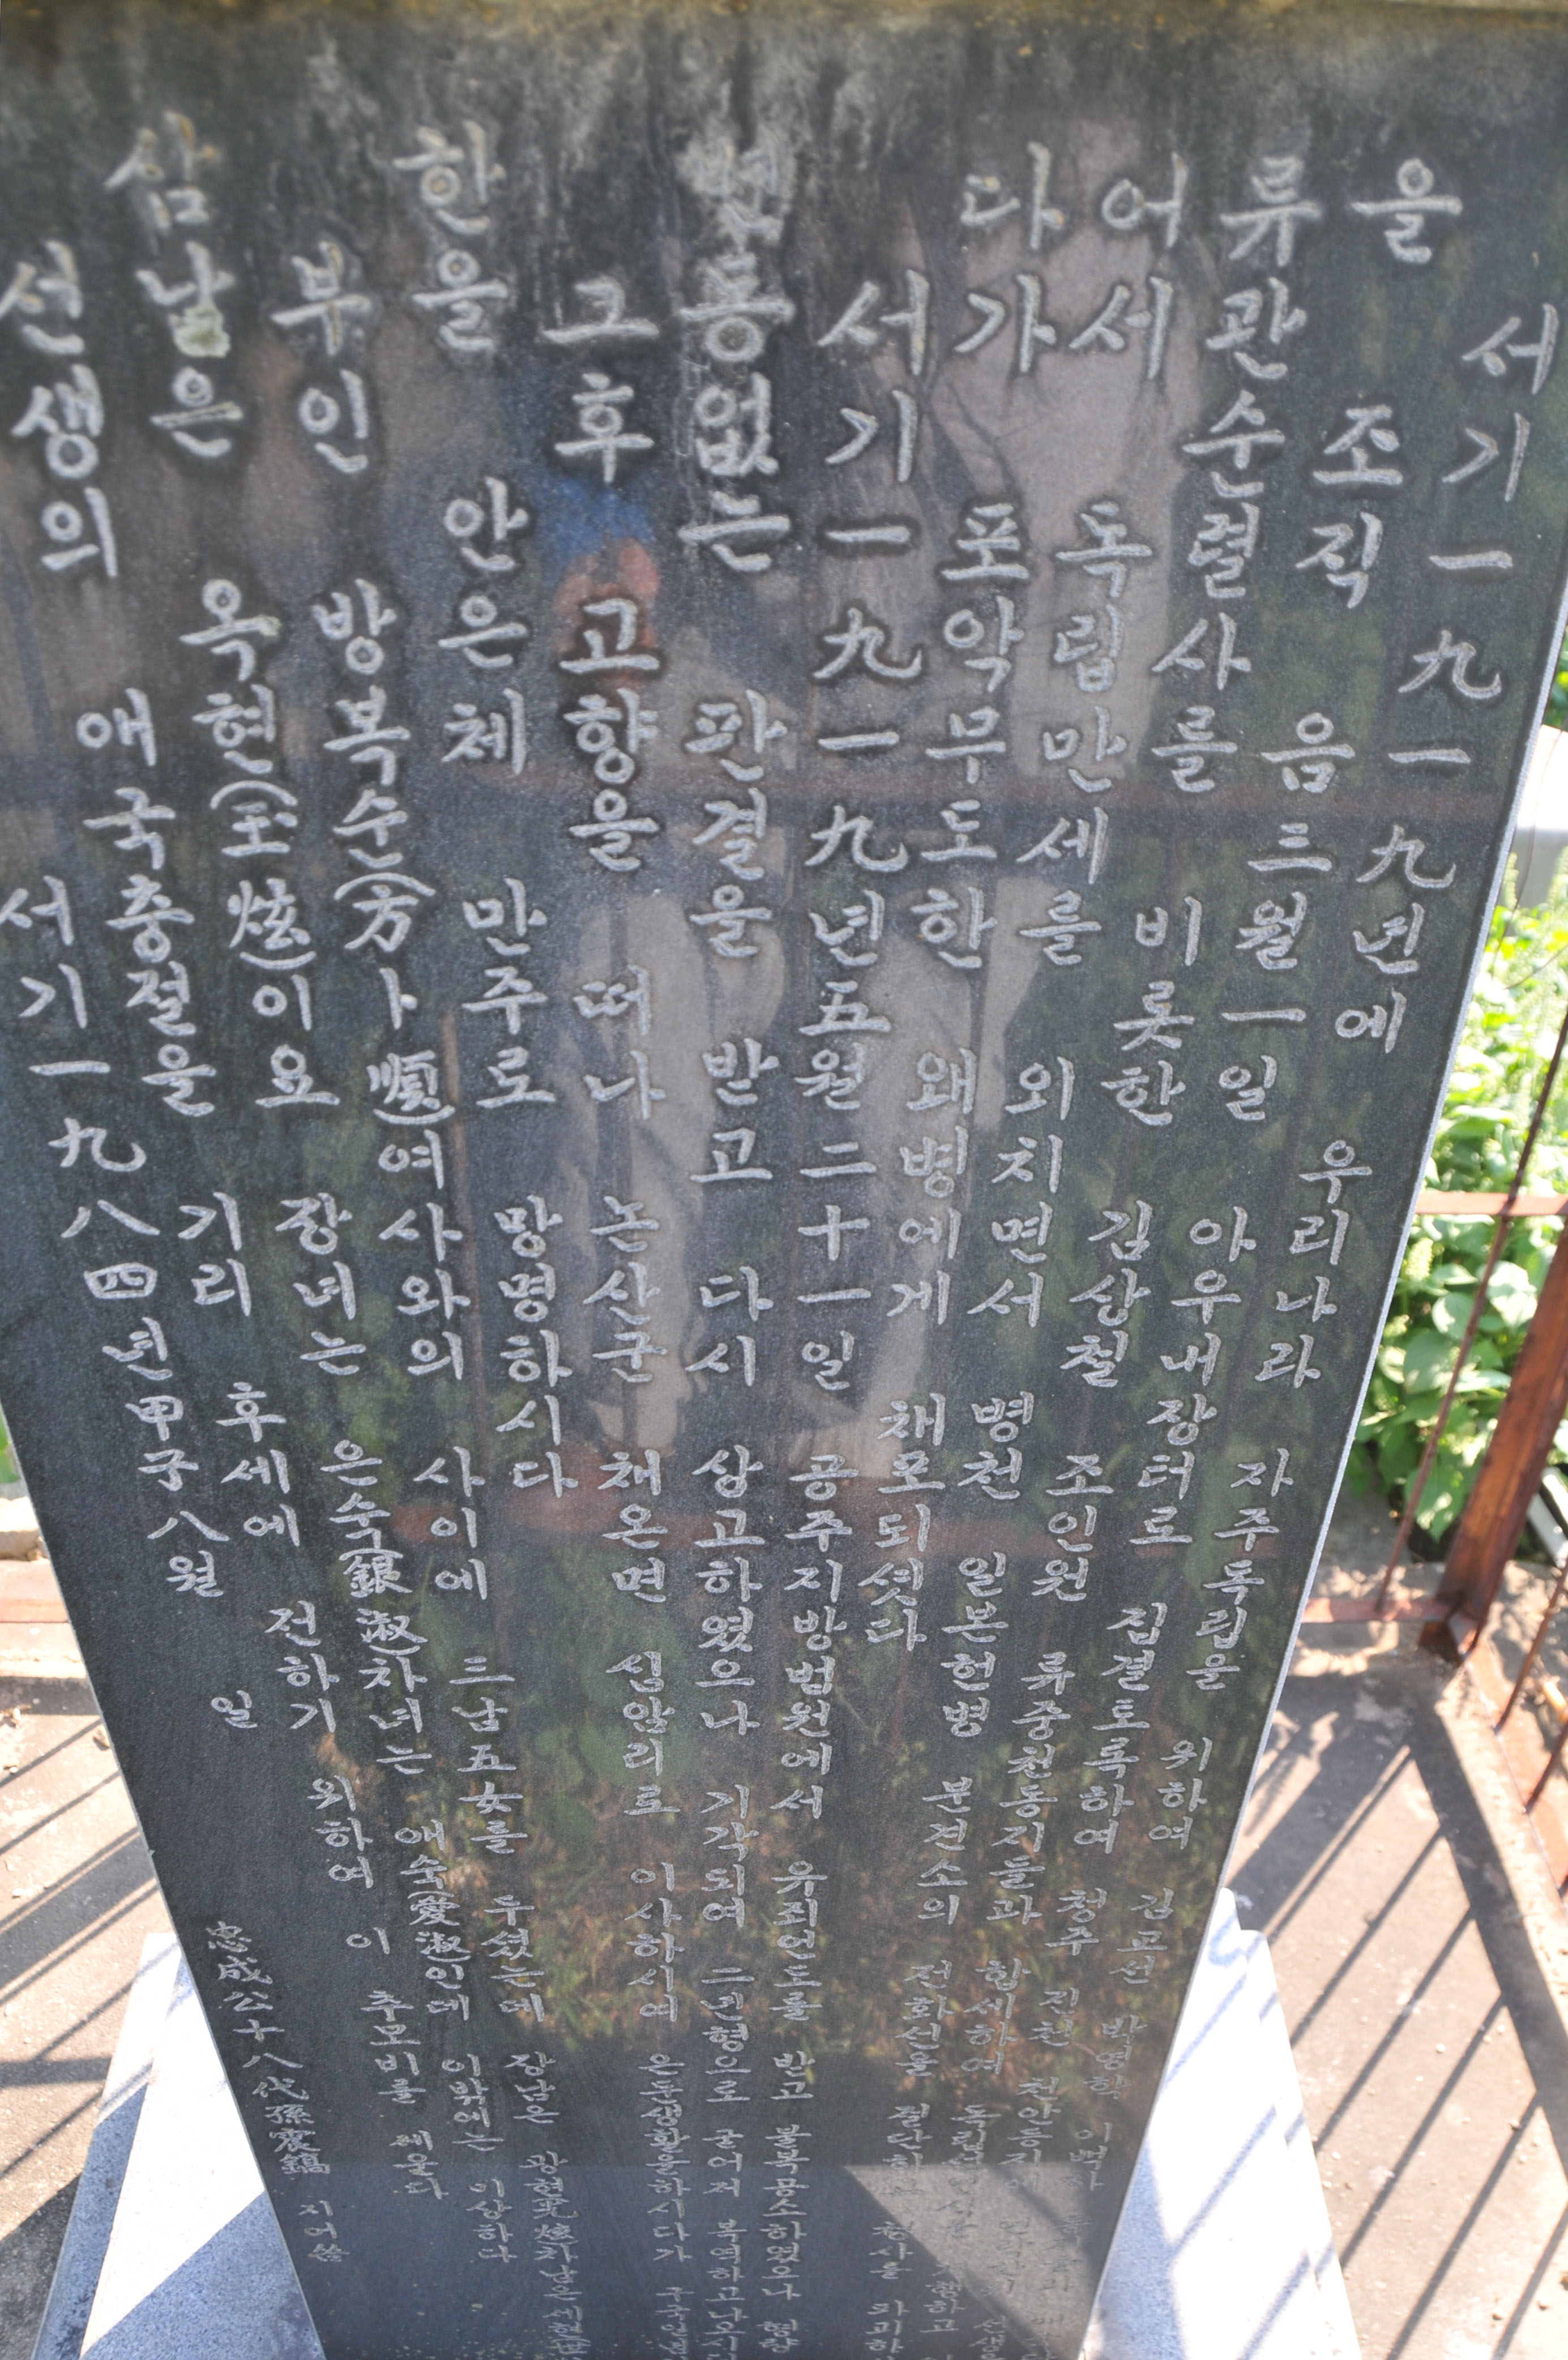 서기一九一九년에 우리나라 자주독립을 위하여 김고선 박영학
을 조직 음三월一일 아우내장터로 집결토록하여 청주 진천 천안등지에
류관순렬사를 비롯한 김상철 조인원 류중천동지들과 합세하여
어서 독립만세를 외치면서 병천 일본헌병 분견소의 전화선을 절단하고 청사를 파괴하
다가 포악무도한 왜병에게 채포되셧다
서기一九一九년五월二十一일 공주지방법원에서 유죄언도를 받고 불복공소하였으나 형량
변동없는 판결을 받고 다시 상고하였으나 기각되여 二년형으로 굳어저 복역하고나오시
그후 고향을 떠나 논산군 채운면 심암리로 이사하시여 은둔생활을하시다가
한을 안은체 만주로 망명하시다
부인 방복순(方卜順)여사와의 사이에 三남五女를 두셨는데 장남은 광현光炫차남은
삼남은 옥현(玉炫)이요 장녀는 은숙(銀淑)차녀는 애숙(愛淑)인데 이밖에는 이상하다
선생의 애국충절을 기리 후세에 전하기 위하여 이 추모비를 세운다
서기一九八四년甲子八월 일
忠成公十八代孫 지어씀